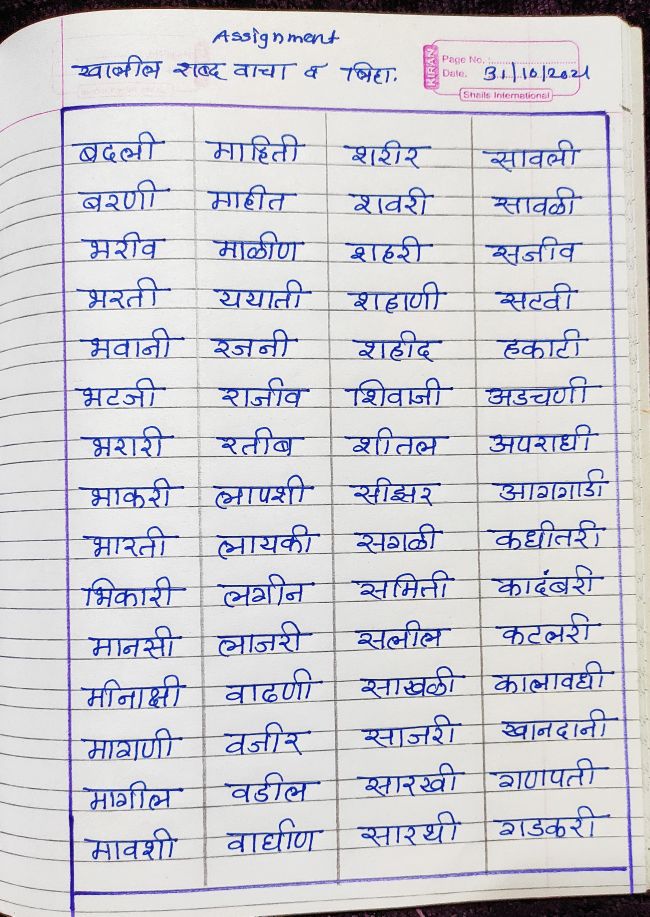 Assignment
KIRAN
Page No.
खालील शब्द वाचा व लिहा.
Date. 31/10/2021
Shails International
बदली माहिती शरीर सावली
बरणी माहीत शवरी सावळी
भरीव माळीण शहरी सजीव
भरती ययाती शहाणी सटवी
भवानी रजनी शहीद हकाटी
भटजी राजीव शिवाजी अडचणी
भरारी रतीब शीतल अपराधी
भाकरी लापशी सीझर आगगाडी
भारती लायकी सगळी कधीतरी
भिकारी लगीन समिती कादंबरी
मानसी लाजरी सलील कटलरी
मीनाक्षी वाढणी साखळी कालावधी
मागणी वजीर साजरी खानदानी
मागील वडील सारखी गणपती
मावशी वाघीण सारथी गडकरी